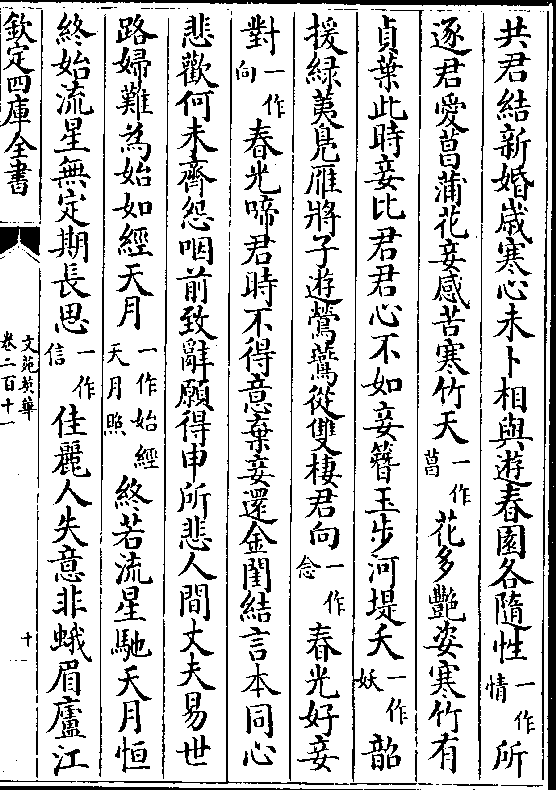 共君結新婚歳寒心未卜相與遊春園各隨性一作情所
逐君愛菖蒲花妾感苦寒竹天一作菖花多艷姿寒竹有
貞葉此時妾比君君心不如妾簪玉步河堤夭一作妖韶
援綠荑鳬雁將子遊鶯鷰從雙棲君向一作念春光好妾
對一作向春光啼君時不得意棄妾還金閨結言本同心
悲歡何未齊怨咽前致辭願得申所悲人間丈夫易世
路婦難為始如經天月一作始經天月照終若流星馳天月恒
終始流星無定期長思一作信佳麗人失意非蛾眉廬江
欽定四庫全書
文苑英華
卷二百十一
十一